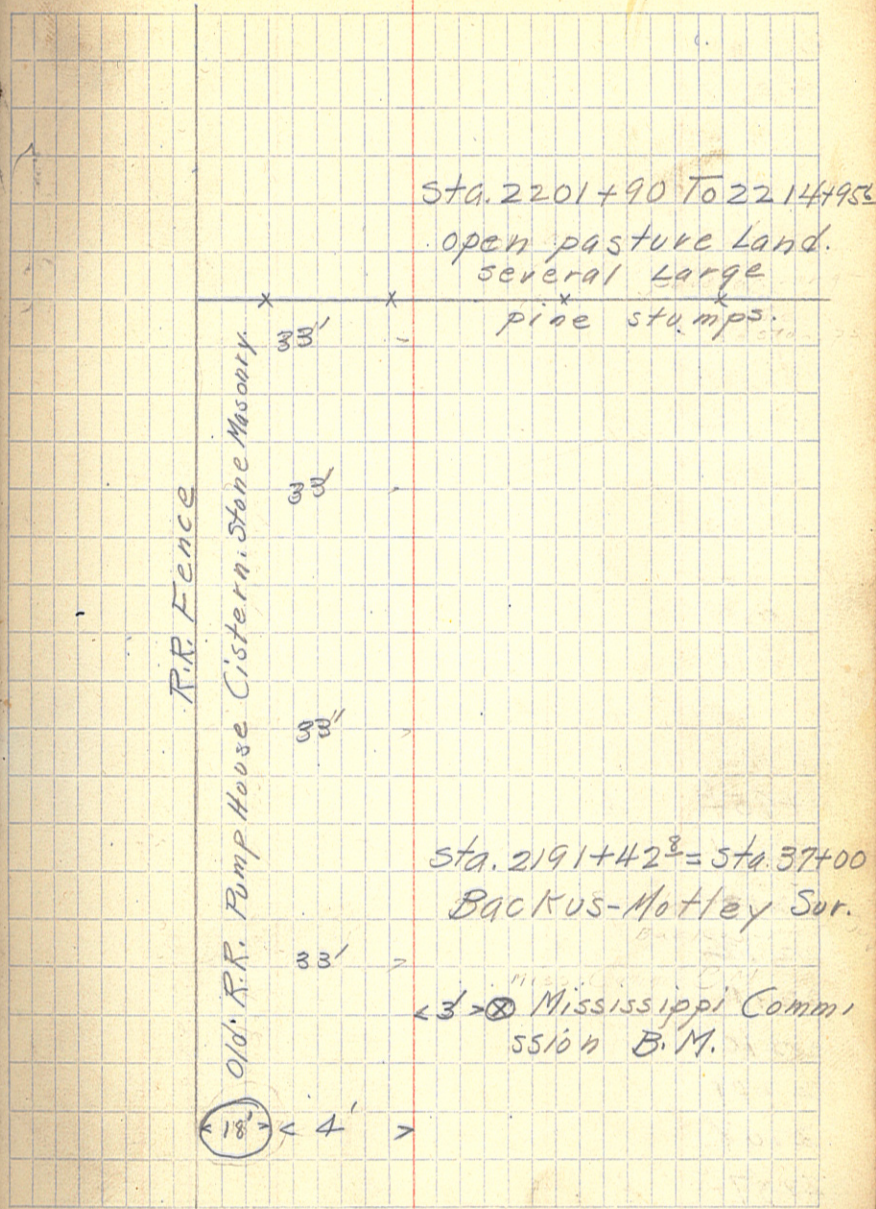 Sta. 2201+90 To 2214+95⁶
open pasture Land.
several Large
pine stumps.
33'
33'
33'
33'
R.R. Fence
Old R.R. Pump House Cistern. Stone Masonry.
Sta. 2191+42⁸ = Sta 37+00
Backus-Motley Sur.
<3'>⊗ Mississippi Comm,
ssion B.M.
<18'> < 4' >